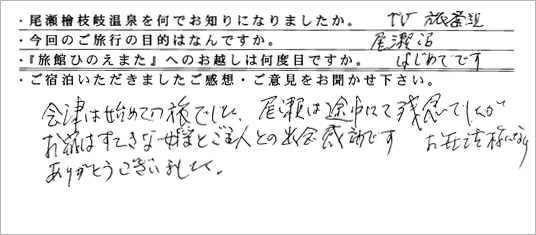 ・尾瀬檜枝岐温泉を何でお知りになりましたか。 TV 旅番組
・今回のご旅行の目的はなんですか。 尾瀬沼
・『旅館ひのえまた』へのお越しは何度目ですか。 はじめてです
・ご宿泊いただきましたご感想・ご意見をお聞かせ下さい。
会津は始めての旅でした、尾瀬は途中にて残念でしたが
お宿はすてきな女将とご主人との出会感動です お世話様になり
ありがとうございました。